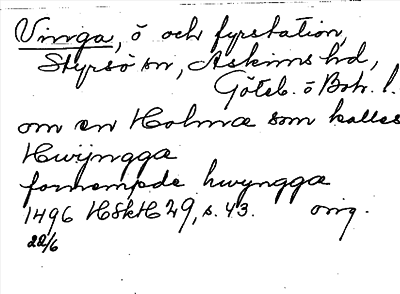 Vinga, ö och fyrstation,
Styrsö sn, Askims hd,
Göteb. ö Boh. l.
om en Holmæ som kalles
Hwijngga
fornempde hwyngga
1496 HSkH 29, s. 43. orig.
22/6